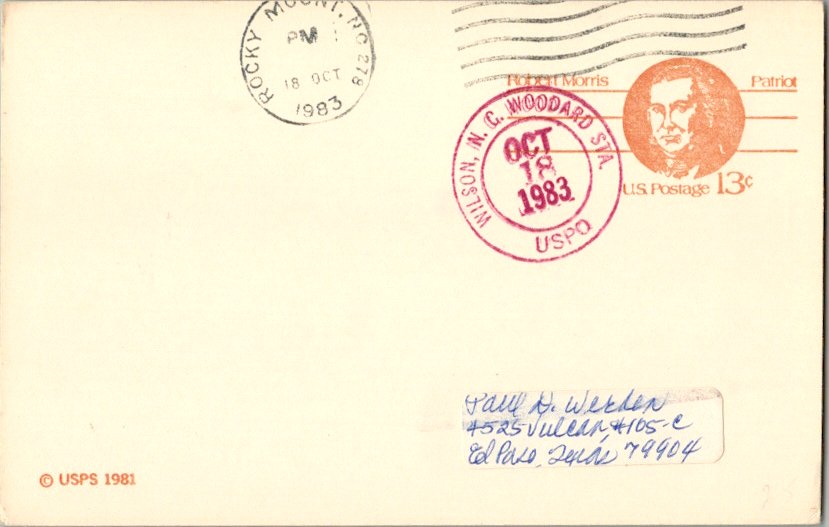 ROCKY MOUNT, NC 278
PM
18 OCT
1983
Robert Morris Patriot
U.S. Postage 13c
WILSON, N. C. WOODARD STA.
OCT
18
1983
USPO
Paul H. Werden
4525 Vulcan, #105-C
El Paso, Texas 79904
© USPS 1981